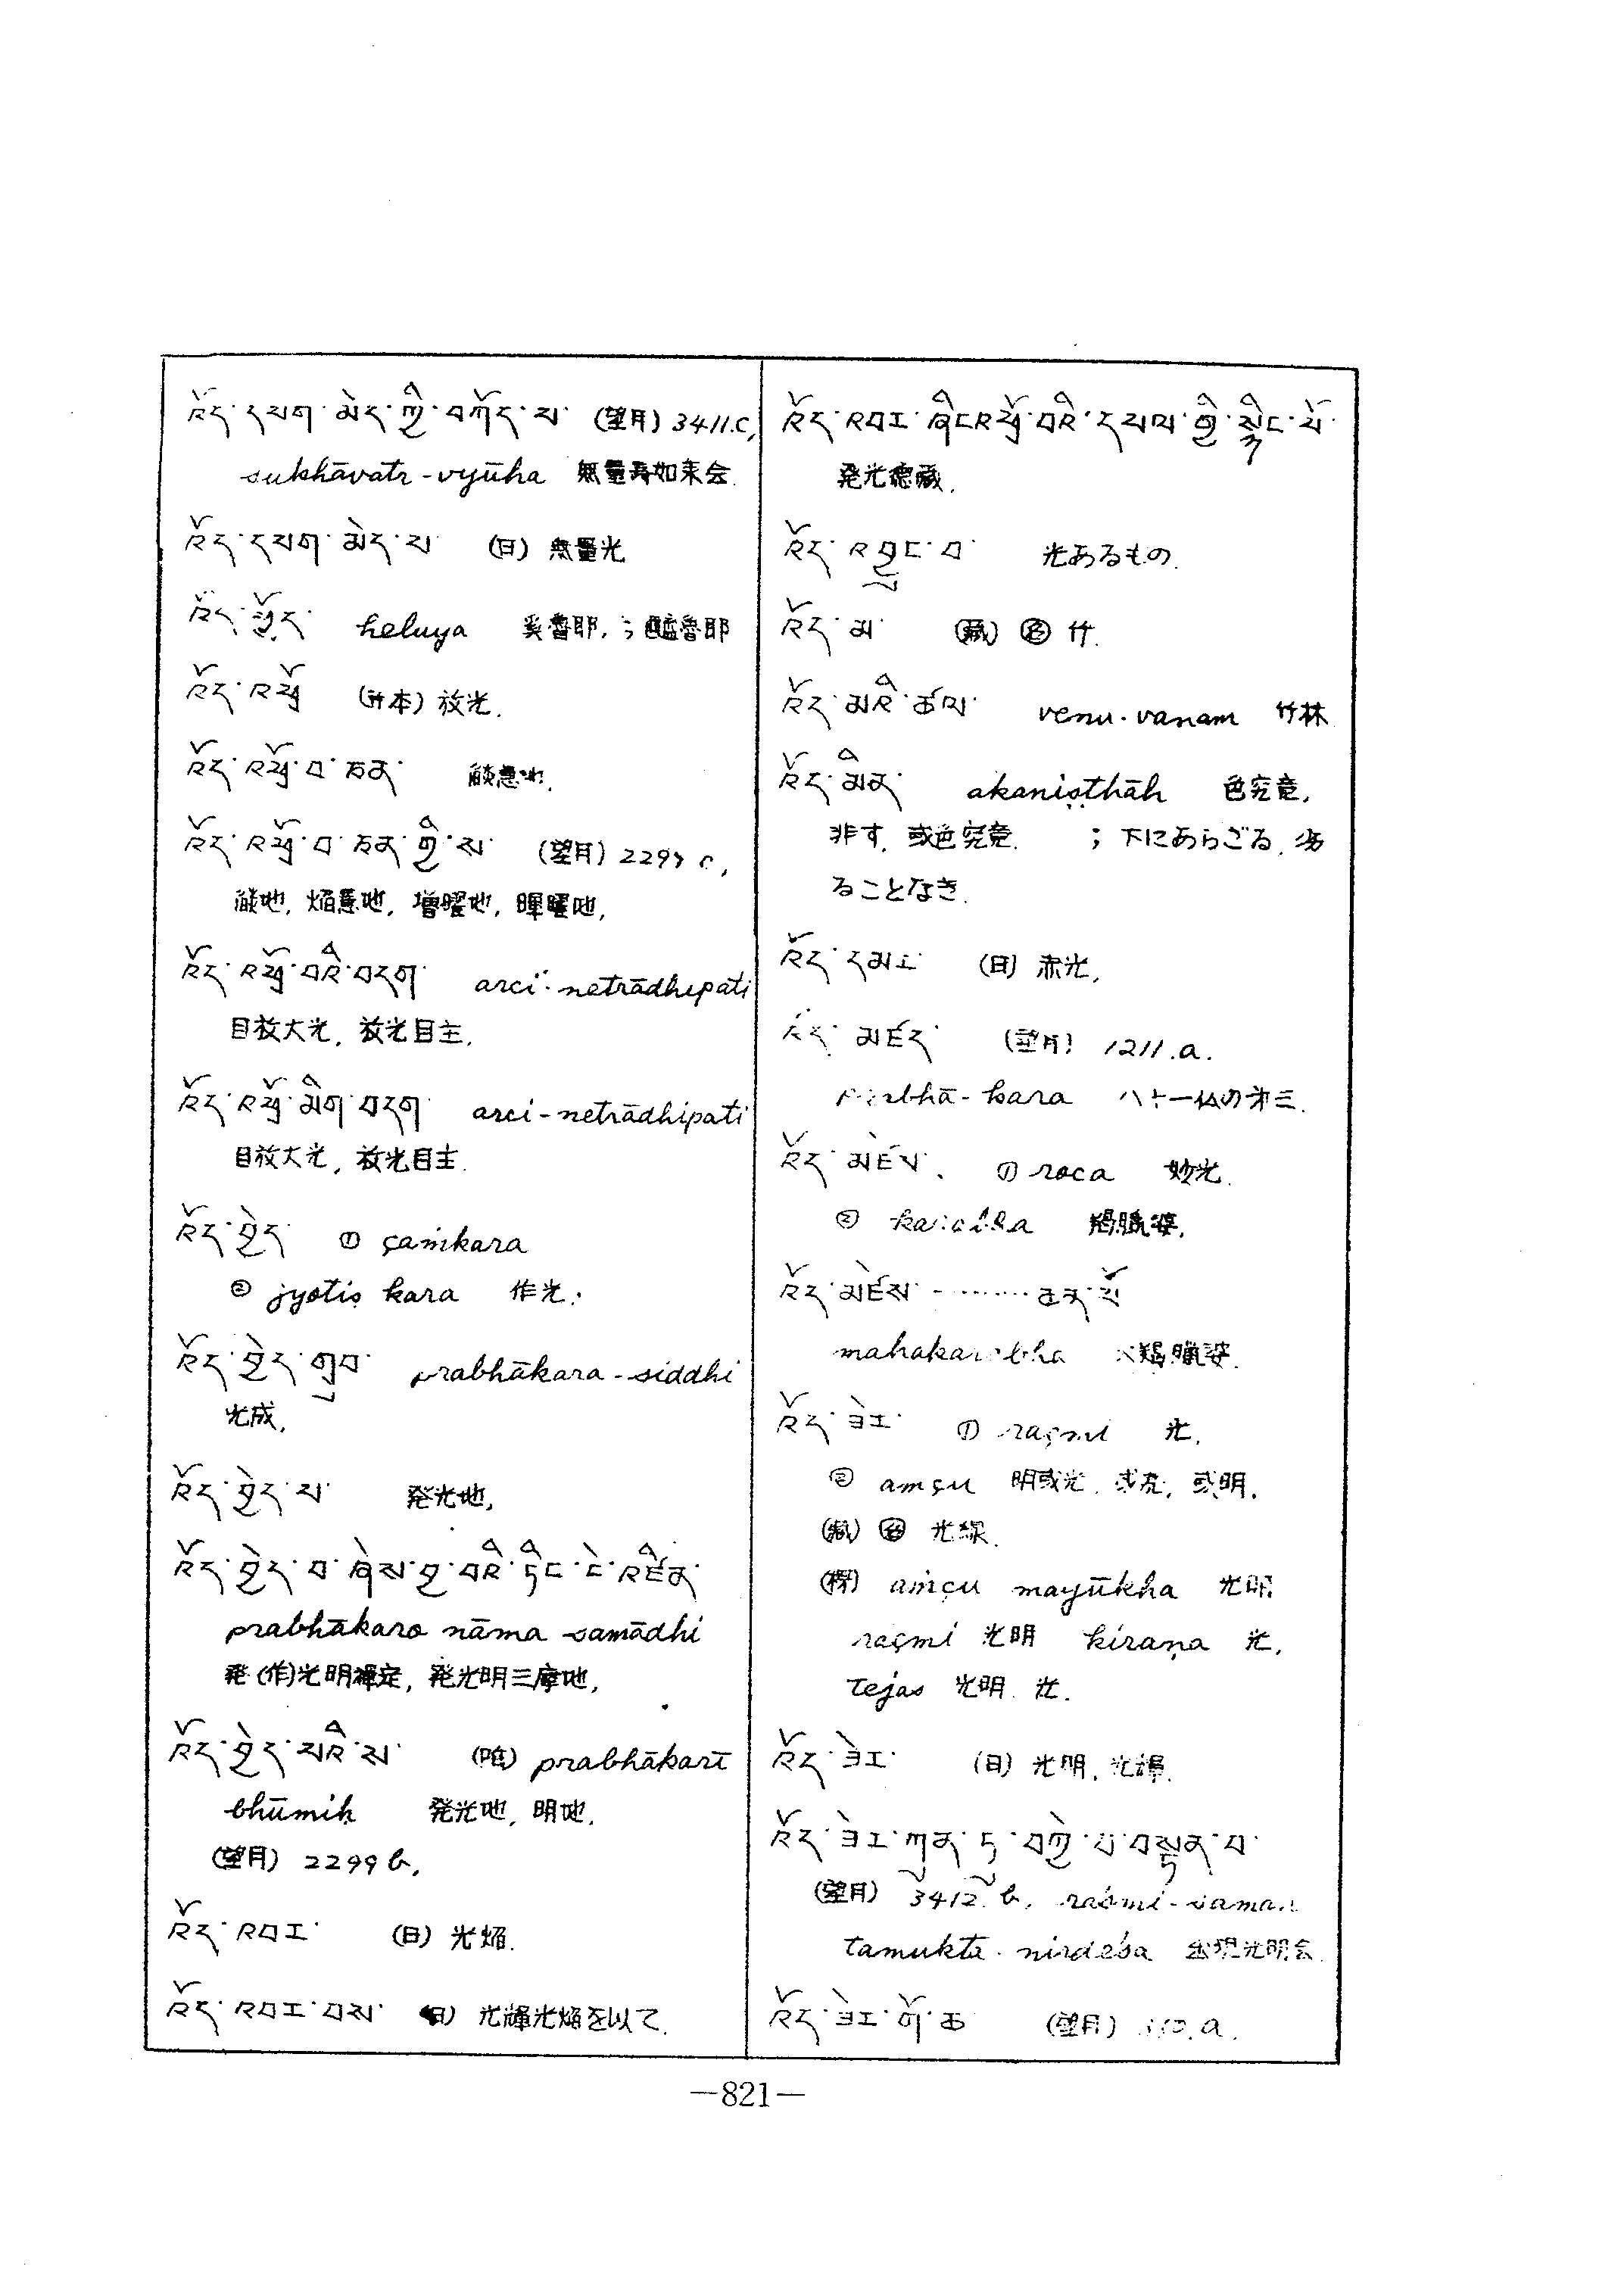 འོད་དཔག་མེད་ཀྱི་བཀོད་པ་ (望月) 3411.c,
sukhāvatī-vyūha 無量寿如来会.
འོད་དཔག་མེད་པ་ (日) 無量光
heluya 奚魯耶,
འོད་འཕྲོ (廾本) 放光.
འོད་འཕྲོ་བ་ཅན་
འོད་འཕྲོ་བ་ཅན་གྱི་ས་ (望月)
焔慧地, 増曜地, 暉曜地,
འོད་འཕྲོ་བའི་བདག་ arci-netrādhipati
目放大光, 放光目主.
འོད་འཕྲོ་མིག་བདག་ arci-netrādhipati
目放大光, 放光目主.
འོད་བྱེད་ ① çaṁkara
② jyotiṣ kara 作光.
འོད་བྱེད་གྲུབ་ prabhākara-siddhi
光成,
འོད་བྱེད་པ་ 発光地,
འོད་བྱེད་བ་ཞེས་བྱ་བའི་ཏིང་ངེ་འཛིན་
prabhākaro nāma samādhi
発(作)光明禅定, 発光明三摩地,
འོད་བྱེད་པའི་ས་ prabhākarī
bhūmiḥ 発光地, 明地.
(望月) 2299 b,
འོད་འབར་ (日) 光焔.
འོད་འབར་བས་ (日) 光輝光焔を以て.
འོད་འབར་ཞིང་འཕྲོ་བའི་དཔལ་གྱི་སྙིང་པོ་
発光徳蔵.
འོད་འབྱུང་བ་ 光あるもの.
འོད་མ་ (蔵) 名 竹.
འོད་མའི་ཚལ་ venu-vanam 竹林
འོད་མིན་ akaniṣṭhāḥ 色究竟,
非す, 或色究竟. ; 下にあらざる, 劣
ることなき.
འོད་དམར་ (日) 赤光,
འོད་མཛད་ (望月) 1211.a.
kara 八十一仏の第三.
འོད་མཛེས་ ① roca 妙光.
② 羯臘婆,
འོད་མཛེས་ ········ ཆེན་པོ
羯臘婆.
འོད་ཟེར་ ① raçmi 光,
② amçu 明或光, 或明.
(蔵) 名 光線.
aṁçu mayūkha 光明
raçmi 光明 kiraṇa 光,
tejas 光明 光.
འོད་ཟེར་ (日) 光明, 光輝.
འོད་ཟེར་ཀུན་ཏུ་བཀྱེ་པ་བསྟན་པ་
(望月) 3412.b, raśmi-saman
tamukta-nirdeśa 出現光明会.
འོད་ཟེར་གོ་ཆ་ (望月)
—821—